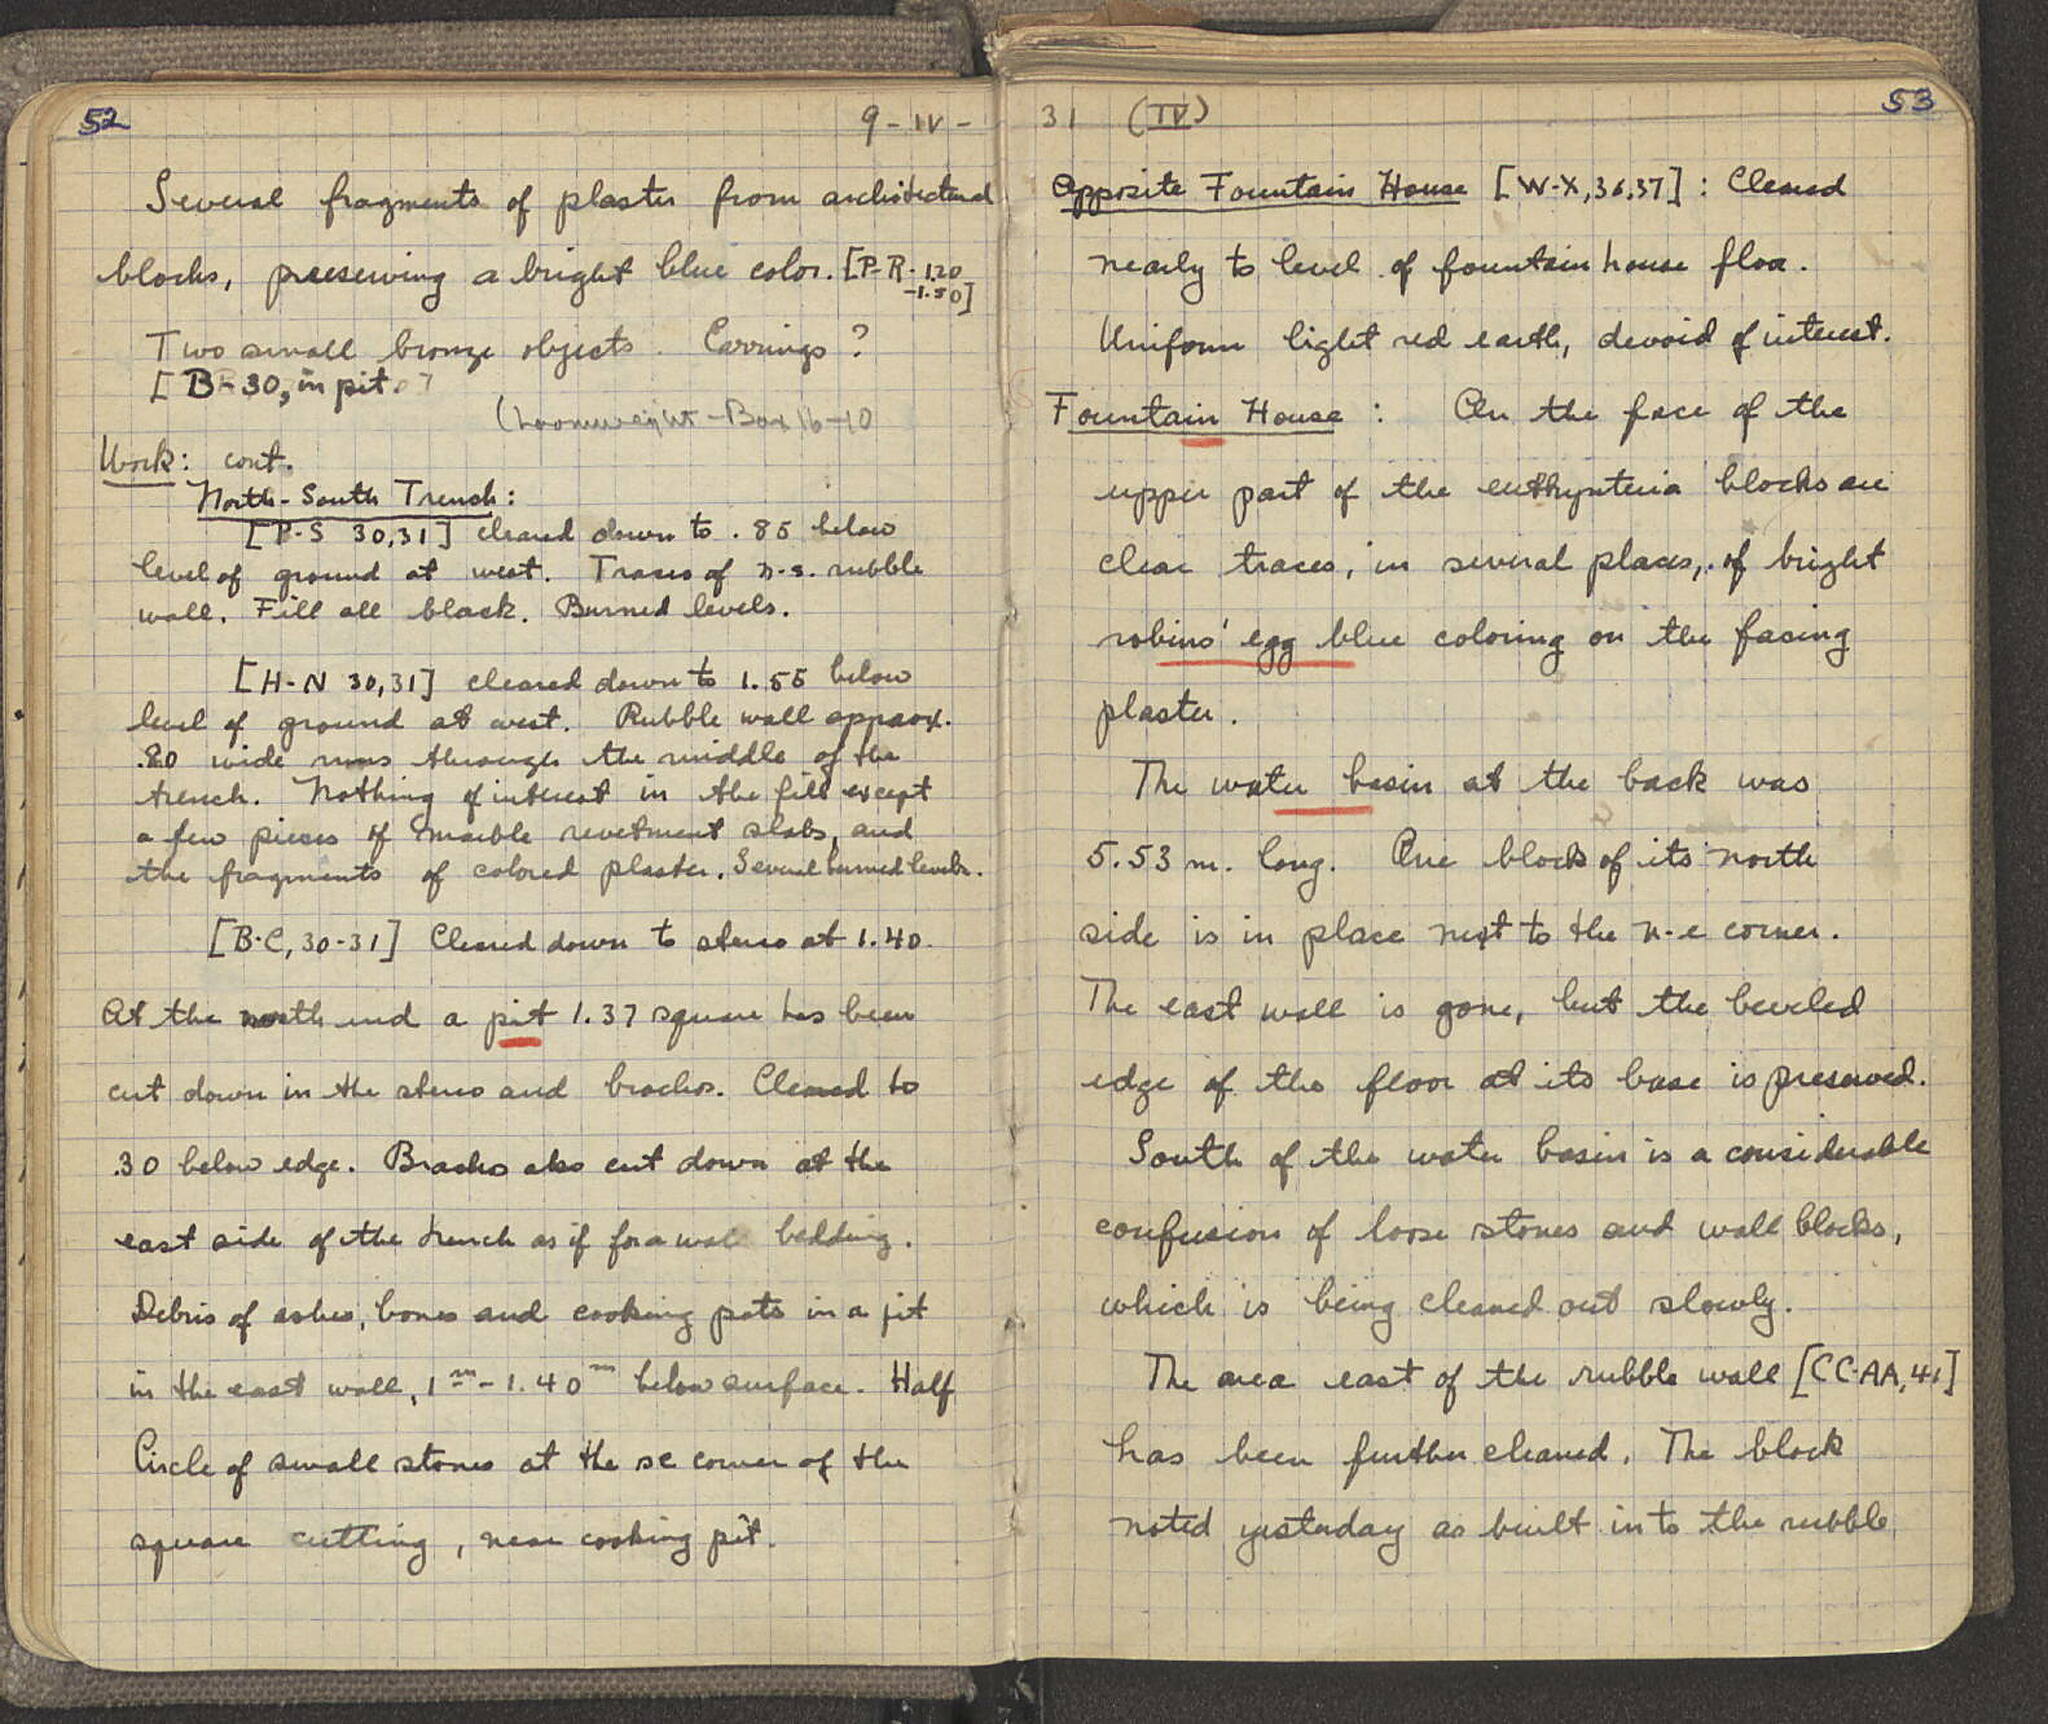 52
9-IV-
Several fragments of plaster from architectural
blocks, preserving a bright blue color. [P-R- 1.20
-1.50]
Two small bronze objects. Earrings?
[B-30, in pit.
(Loomweight - Box 16-10
Work: cont.
North-South Trench:
[P-S 30,31] cleared down to .85 below
level of ground at west. Traces of n-s. rubble
wall. Fill all black. Burned levels.
[H-N 30,31] cleared down to 1.55 below
level of ground at west. Rubble wall approx.
.80 wide runs through the middle of the
trench. Nothing of interest in the fill except
a few pieces of marble revetment slabs, and
the fragments of colored plaster. Several burned levels.
[B-C, 30-31] Cleared down to stereo at 1.40.
At the north end a pit 1.37 square has been
cut down in the stereo and brachos. Cleared to
.30 below edge. Brachos also cut down at the
east side of the trench as if for a wall bedding.
Debris of ashes, bones and cooking pots in a pit
in the east wall, 1m - 1.40m below surface. Half
Circle of small stones at the se corner of the
square cutting, near cooking pit.
31 (IV)
53
Opposite Fountain House [W-X, 36,37]: Cleared
nearly to level of fountain house floor.
Uniform light red earth, devoid of interest.
Fountain House: On the face of the
upper part of the euthynteria blocks are
clear traces, in several places, of bright
robins' egg blue coloring on the facing
plaster.
The water basin at the back was
5.53 m. long. One block of its north
side is in place next to the n-e corner.
The east wall is gone, but the beveled
edge of the floor at its base is preserved.
South of the water basin is a considerable
confusion of loose stones and wall blocks,
which is being cleaned out slowly.
The area east of the rubble wall [CC-AA, 41]
has been further cleaned. The block
noted yesterday as built into the rubble